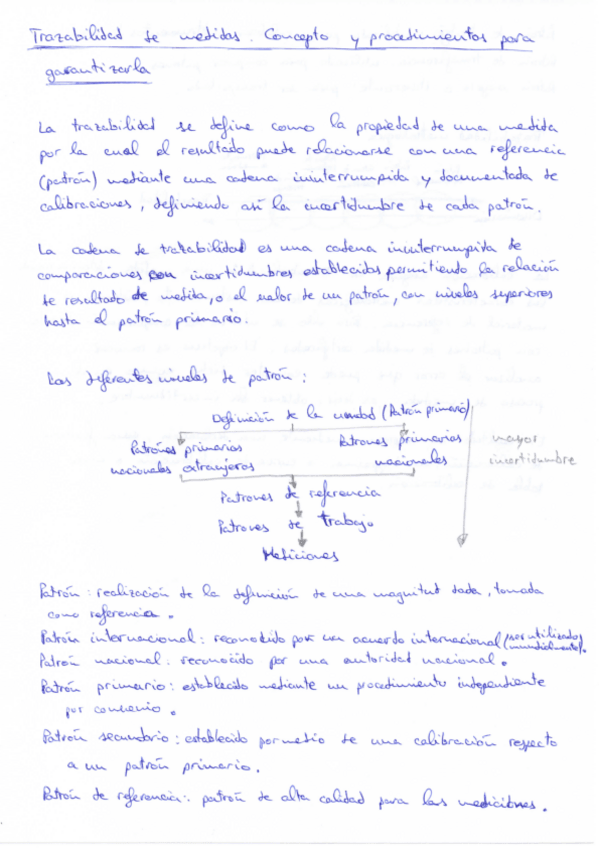 Trazabilidad de medidas. Concepto y procedimientos para
garantizarla
La trazabilidad se define como la propiedad de una medida
por la cual el resultado puede relacionarse con una referencia
(patrón) mediante una cadena ininterrumpida y documentada de
calibraciones, definiendo así la incertidumbre de cada patrón.
La cadena de trazabilidad es una cadena ininterrumpida de
comparaciones con incertidumbres establecidas permitiendo la relación
de resultado de medida, o el valor de un patrón, con niveles superiores
hasta el patrón primario.
Los diferentes niveles de patrón:
Definición de la unidad (Patrón primario)
Patrones primarios nacionales extranjeros
Patrones primarios nacionales
mayor incertidumbre
Patrones de referencia
Patrones de trabajo
Mediciones
Patrón: realización de la definición de una magnitud dada, tomada
como referencia.
Patrón internacional: reconocido por un acuerdo internacional (ser utilizado mundialmente).
Patrón nacional: reconocido por una autoridad nacional.
Patrón primario: establecido mediante un procedimiento independiente
por convenio.
Patrón secundario: establecido por medio de una calibración respecto
a un patrón primario.
Patrón de referencia: patrón de alta calidad para las mediciones.